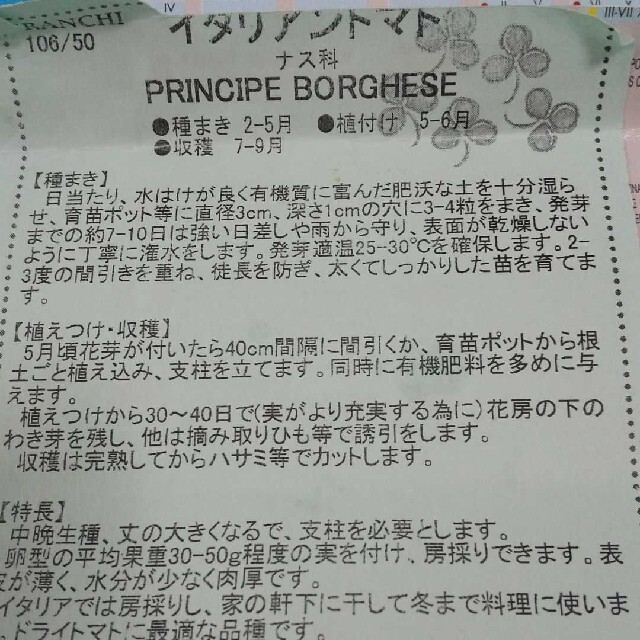 FRANCHI
106/50
イタリアントマト
ナス科
PRINCIPE BORGHESE
●種まき 2-5月 ●植付け 5-6月
●収穫 7-9月
【種まき】
日当たり、水はけが良く有機質に富んだ肥沃な土を十分湿ら
せ、育苗ポット等に直径3cm、深さ1cmの穴に3-4粒をまき、発芽
までの約7-10日は強い日差しや雨から守り、表面が乾燥しない
ように丁寧に潅水をします。発芽適温25-30℃を確保します。2-
3度の間引きを重ね、徒長を防ぎ、太くてしっかりした苗を育てま
す。
【植えつけ・収穫】
5月頃花芽が付いたら40cm間隔に間引くか、育苗ポットから根
土ごと植え込み、支柱を立てます。同時に有機肥料を多めに与
えます。
植えつけから30～40日で(実がより充実する為に)花房の下の
わき芽を残し、他は摘み取りひも等で誘引をします。
収穫は完熟してからハサミ等でカットします。
【特長】
中晩生種、丈の大きくなるで、支柱を必要とします。
卵型の平均果重30-50g程度の実を付け、房採りできます。表
皮が薄く、水分が少なく肉厚です。
イタリアでは房採りし、家の軒下に干して冬まで料理に使いま
す。ドライトマトに最適な品種です。
IV
VI
III-VII